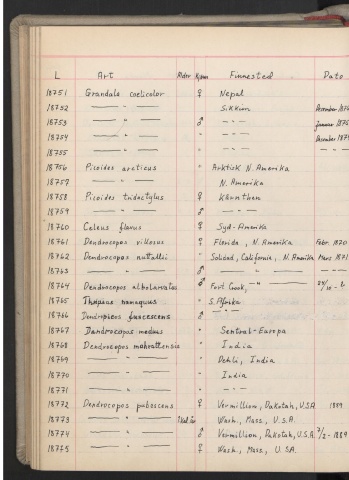 L Art Alder Kjønn Finnested Dato
18751 Grandala coelicolor ♀ Nepal
18752 —— " —— Sikkim
18753 —— " —— ♂ — " — Januar 1875
18754 —— " —— " — " — December 1874
18755 —— " —— " — " —
18756 Picoides arcticus " Arktisk N. Amerika
18757 —— " —— N. Amerika
18758 Picoides tridactylus ♀ Kärnthen
18759 —— " —— ♂ — " —
18760 Celeus flavus ♀ Syd-Amerika
18761 Dendrocopos villosus ♀ Florida, N. Amerika Febr. 1870
18762 Dendrocopos nuttallii " Solidad, California, N. Amerika Mars 1871
18763 —— " —— ♂ —— " ——
18764 Dendrocopos albolarvatus ♂ Fort Crook,
18765 Thripias namaquus " S. Afrika
18766 Dendropicos fuscescens ♂ — " —
18767 Dendrocopos medius " Sentral-Europa
18768 Dendrocopos mahrattensis " India
18769 —— " —— Dehli, India
18770 —— " —— " India
18771 —— " —— " — " —
18772 Dendrocopos pubescens ♀ Vermillion, Dakotah, U.S.A 1889
18773 —— " —— Wash., Mass., U.S.A.
18774 —— " —— ♂ Vermillion, Dakotah, U.S.A. 7/2-1889
18775 —— " —— ♀ Wash., Mass., U.S.A.